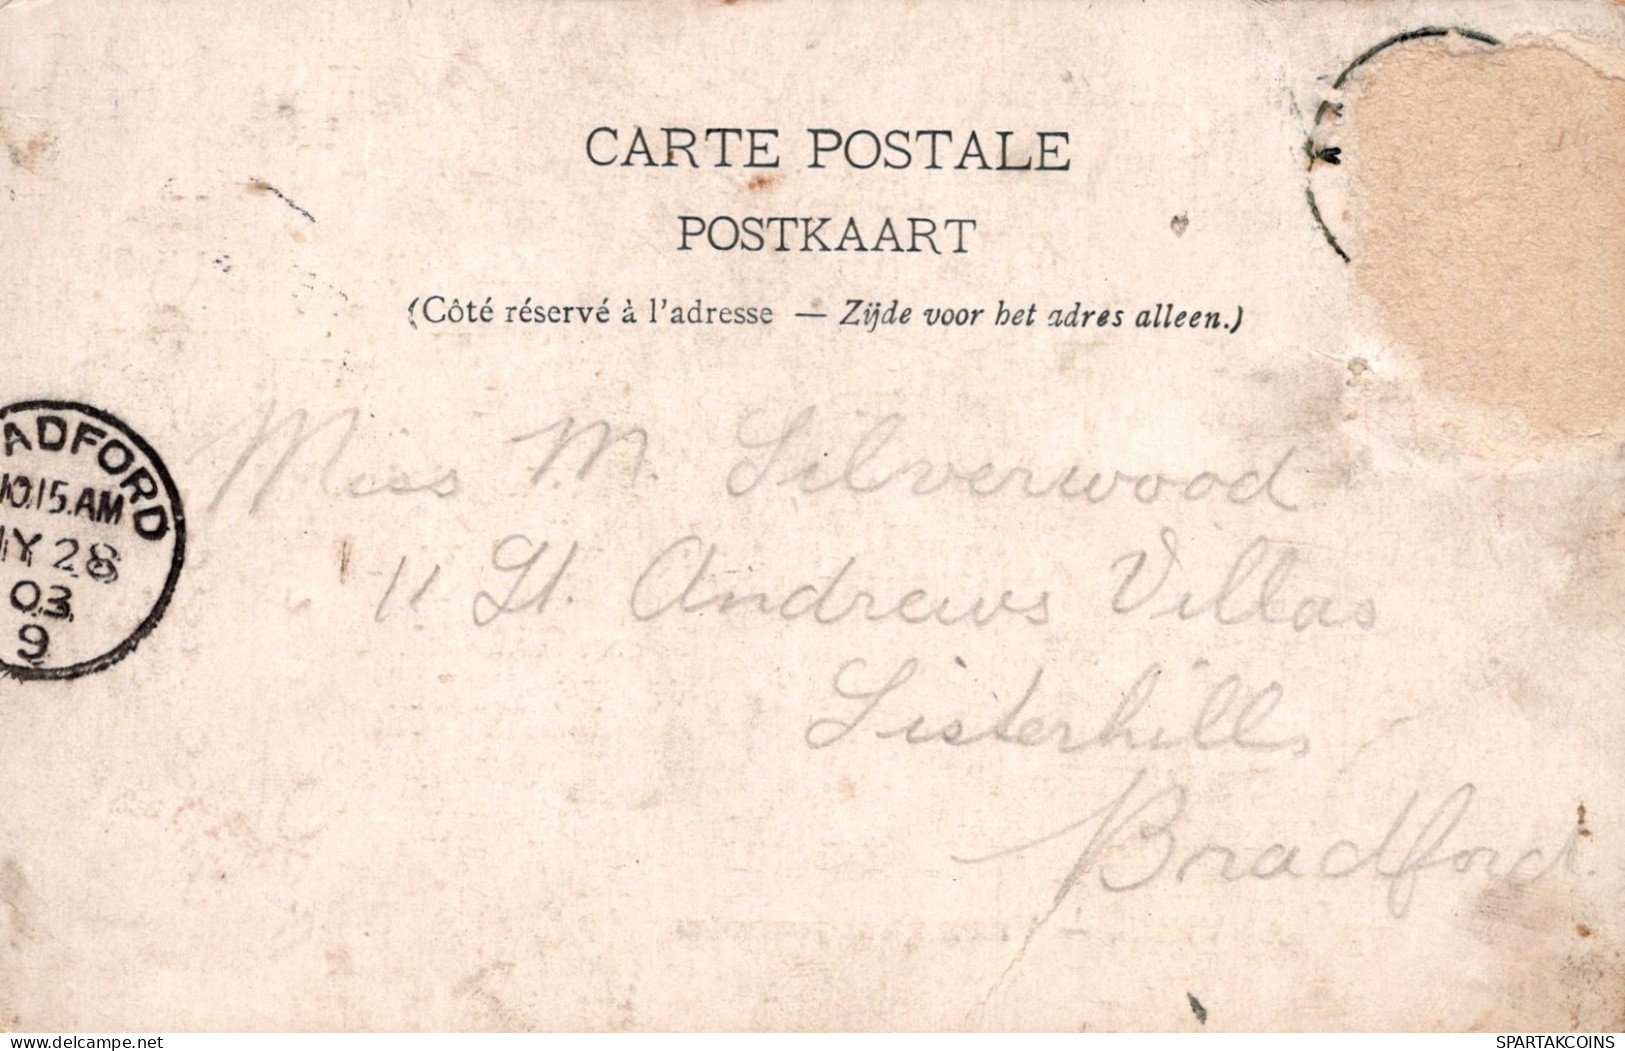 CARTE POSTALE
POSTKAART
(Côté réservé à l'adresse — Zijde voor het adres alleen.)
ADFORD
10.15.AM
MY 28
03
9
Miss M. Silverwood
11 St. Andrews Villas
Listerhills
Bradford.
www.delcampe.net
SPARTAKCOINS